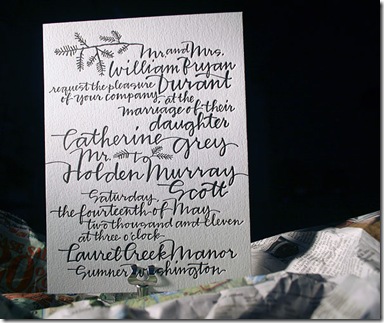 Mr. and Mrs.
William Bryan
request the pleasure Durant
of your company, at the
marriage of their
daughter
Catherine Grey
Mr. to
Holden Murray
Scott
Saturday,
the fourteenth of May,
two thousand and eleven
at three o'clock
Laurel Creek Manor
Sumner washington